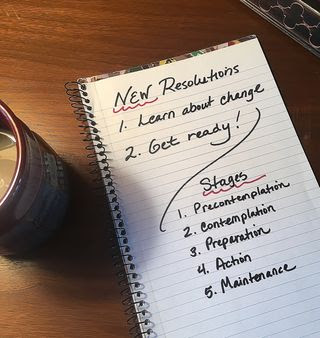 NEW Resolutions
1. Learn about change
2. Get ready!
Stages
1. Precontemplation
2. Contemplation
3. Preparation
4. Action
5. Maintenance